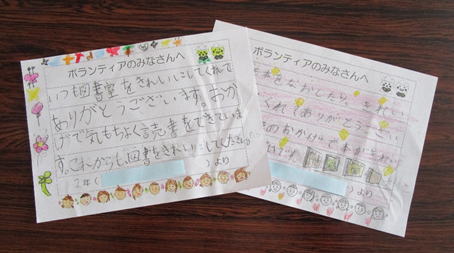 ボランティアのみなさんへ
いつも図書室をきれいにしてくれて
ありがとうございます。おか
げで気もちよく読書をできていま
す。これからも図書をきれいにしてください。
2年( )より
ボランティアのみなさんへ
本をなおしたり、きれい
くれてありがとうござい
のおかげで本が
)より